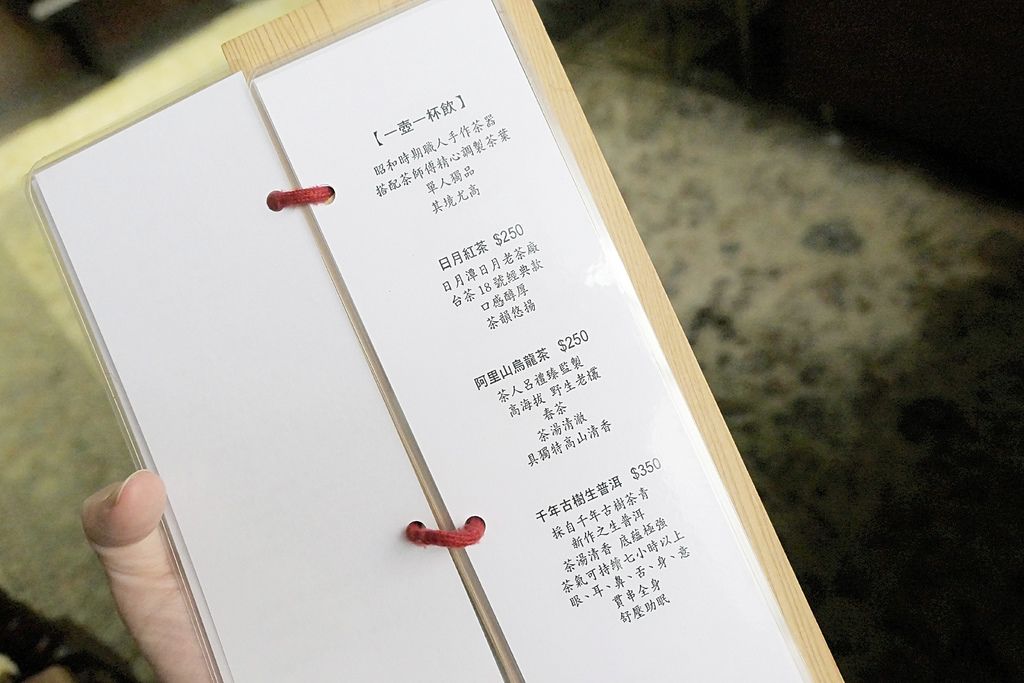 【一壺一杯飲】
昭和時期職人手作茶器
搭配茶師傅精心調製茶葉
單人獨品
其境尤高
日月紅茶 $250
日月潭日月老茶廠
台茶18號經典款
口感醇厚
茶韻悠揚
阿里山烏龍茶 $250
茶人呂禮臻監製
高海拔 野生老欉
春茶
茶湯清澈
具獨特高山清香
千年古樹生普洱 $350
採自千年古樹茶青
新作之生普洱
茶湯清香 底蘊極強
茶氣可持續七小時以上
眼、耳、鼻、舌、身、意
貫串全身
舒壓助眠